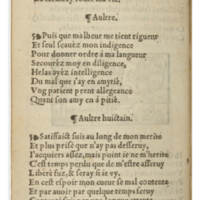 ¶Aultre.
Puis que malheur me tient rigueur
Et seul scauez mon indigence
Pour donner ordre à ma langueur
Secourez moy en diligence
Helas ayez intelligence
Du mal que i'ay en amytié,
Vng patient prent allegeance
Quant son amy en à pitié.
¶Aultre huictain.
Satisfaict suis au long de mon merite
Et plus prisé que n'ay pas desseruy,
I'acquiers assez, mais point ie ne m'herite
C'est temps perdu que de m'estre asseruy
Liberé fuz, & seray si ie vy.
En cest espoir mon cueur se mal contente
Et par auoir par quelque temps seruy